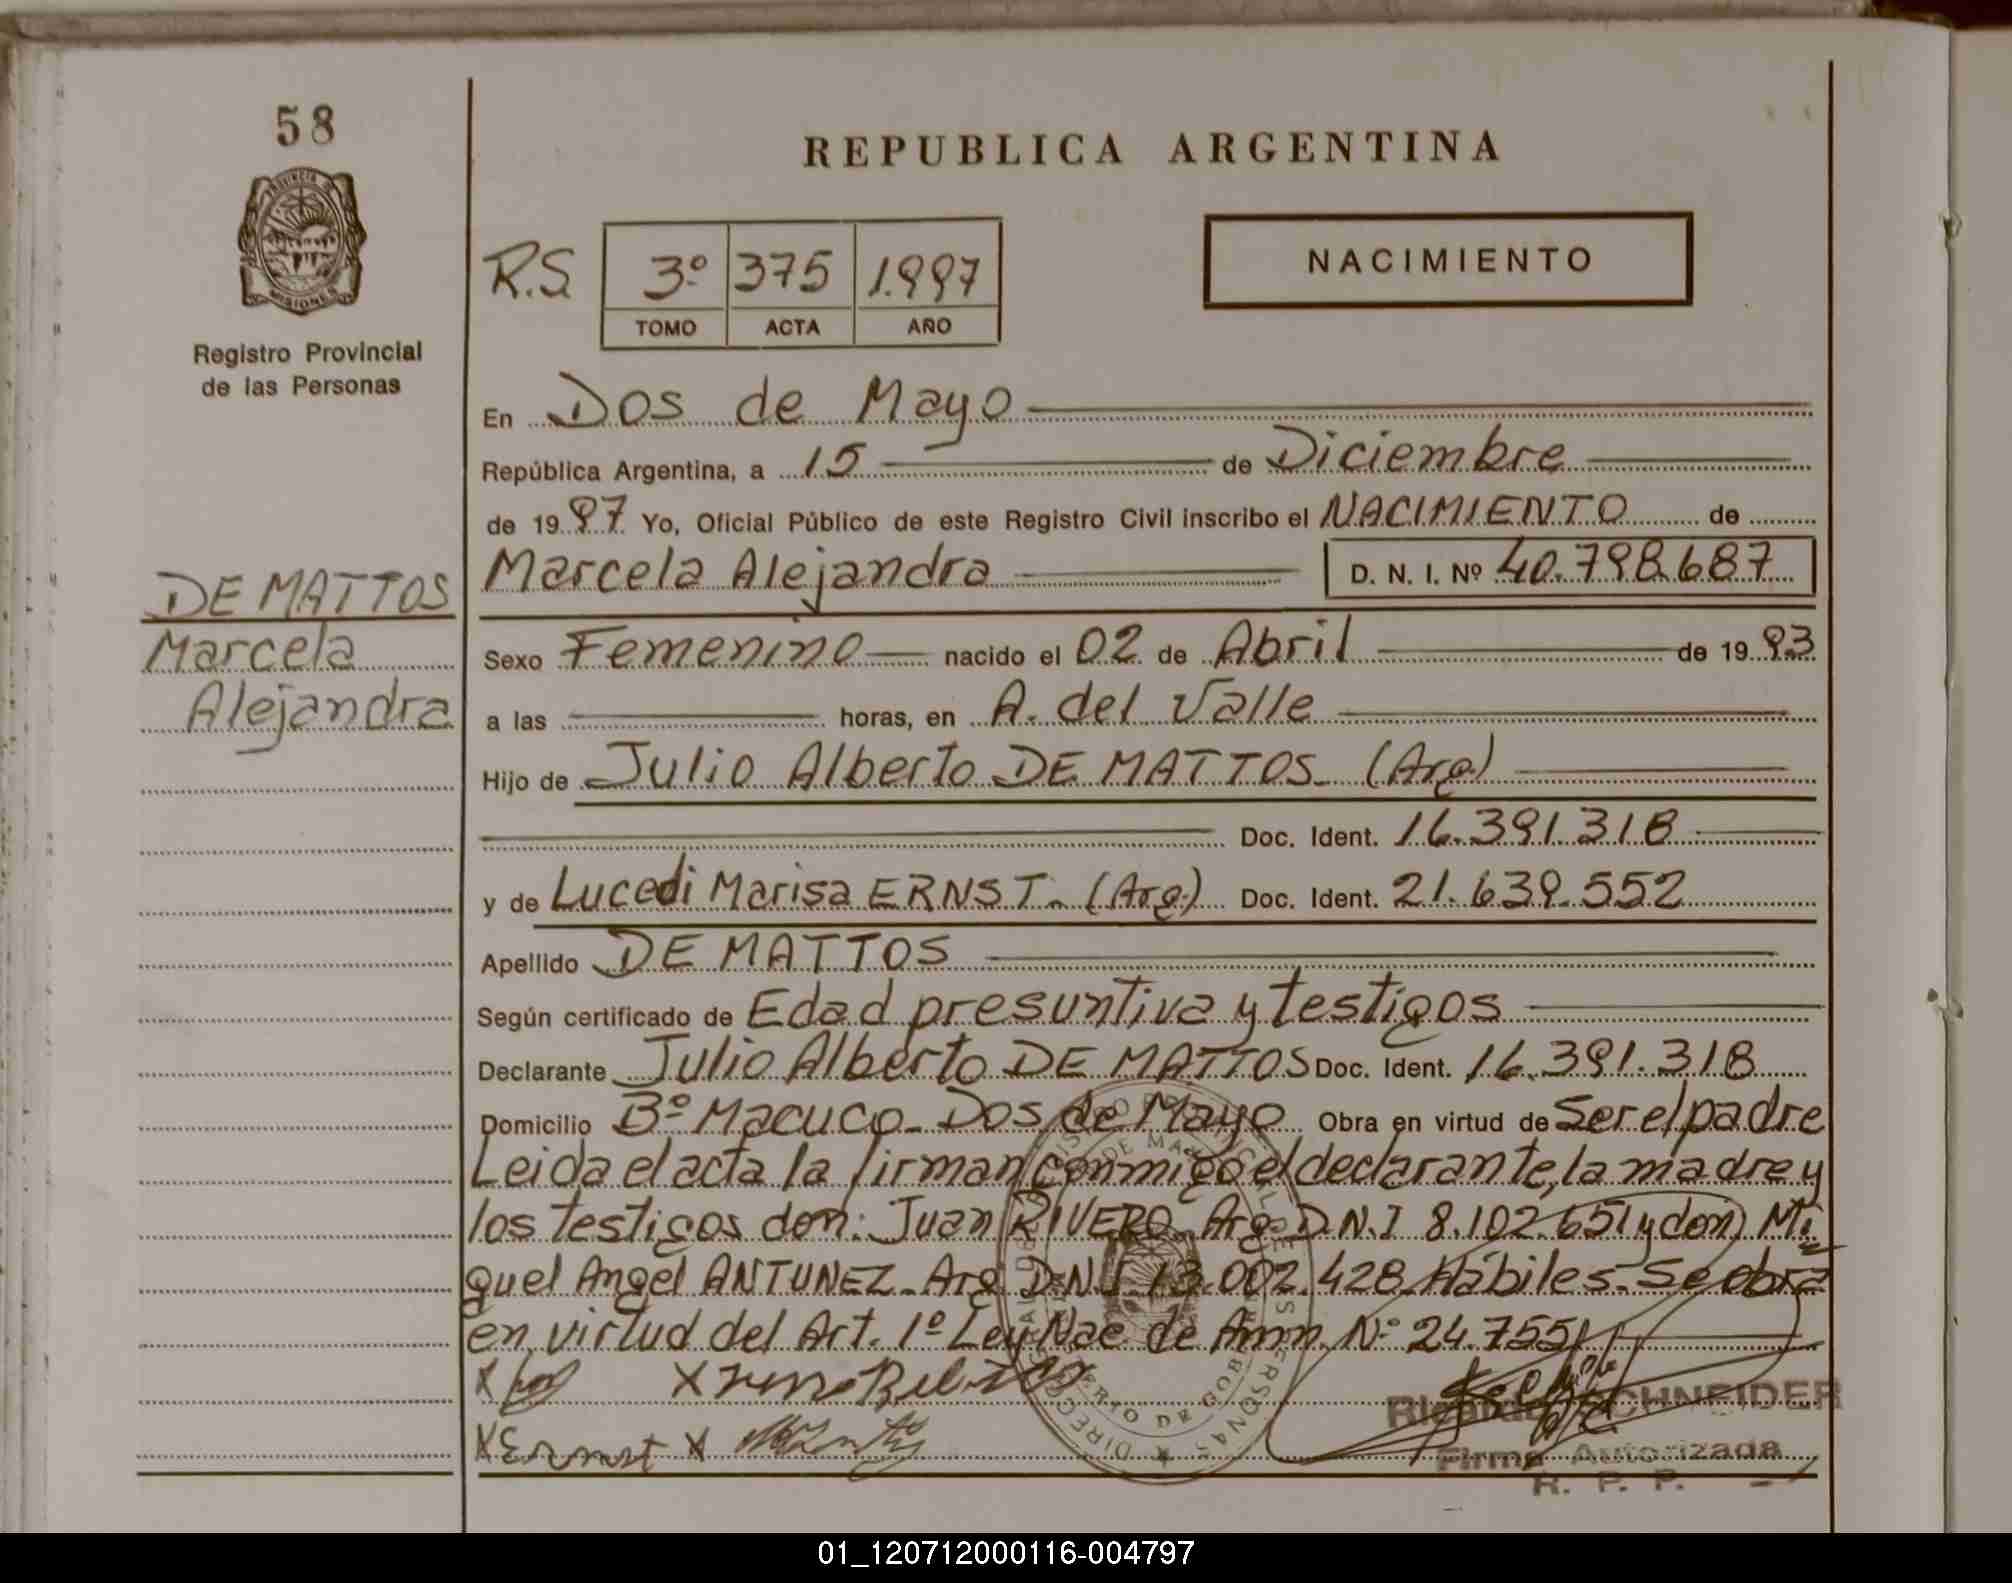 58
PROVINCIA DE
MISIONES
Registro Provincial
de las Personas
DE MATTOS
Marcela
Alejandra
REPUBLICA ARGENTINA
R.S. 3º 375 1.997
TOMO ACTA AÑO
NACIMIENTO
En Dos de Mayo
República Argentina, a 15 de Diciembre
de 1997 Yo, Oficial Público de este Registro Civil inscribo el NACIMIENTO de
Marcela Alejandra D. N. I. Nº 40.798.687
Sexo Femenino nacido el 02 de Abril de 1993
a las horas, en A. del Valle
Hijo de Julio Alberto DE MATTOS (Arg)
Doc. Ident. 16.391.318
y de Lucedi Marisa ERNST. (Arg.) Doc. Ident. 21.639.552
Apellido DE MATTOS
Según certificado de Edad presuntiva y testigos
Declarante Julio Alberto DE MATTOS Doc. Ident. 16.391.318
Domicilio Bº Macuco - Dos de Mayo Obra en virtud de Ser el padre
Leida el acta la firman conmigo el declarante, la madre y
los testigos don: Juan RIVERO - Arg. D.N.I 8.102.651 y don Mi
guel Angel ANTUNEZ - Arg D.N.I 13.002.428 Hábiles. Se obra
en virtud del Art. 1º Ley Nac de Amn. Nº 24.755
X X
X Ernst X
Ricardo SCHNEIDER
Firma Autorizada
R. P. P.
01_120712000116-004797